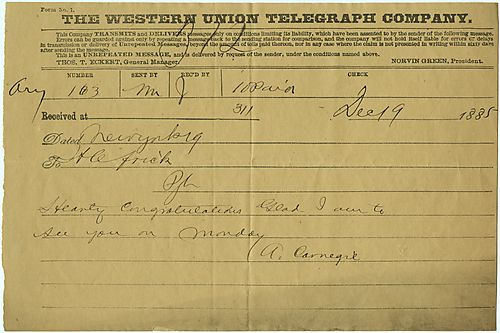 Form No. 1.
THE WESTERN UNION TELEGRAPH COMPANY.
This Company TRANSMITS and DELIVERS messages only on conditions limiting its liability, which have been assented to by the sender of the following message.
Errors can be guarded against only by repeating a message back to the sending station for comparison, and the company will not hold itself liable for errors or delays
in transmission or delivery of Unrepeated Messages, beyond the amount of tolls paid thereon, nor in any case where the claim is not presented in writing within sixty days
after sending the message.
This is an UNREPEATED MESSAGE, and is delivered by request of the sender, under the conditions named above.
THOS. T. ECKERT, General Manager. NORVIN GREEN, President.
NUMBER SENT BY REC'D BY CHECK
103 J 10 Paid
Received at 311 Dec 19 1885
Dated Newyork 19
To H C Frick
Pgh
Hearty Congratulations Glad I am to
see you on Monday
A. Carnegie